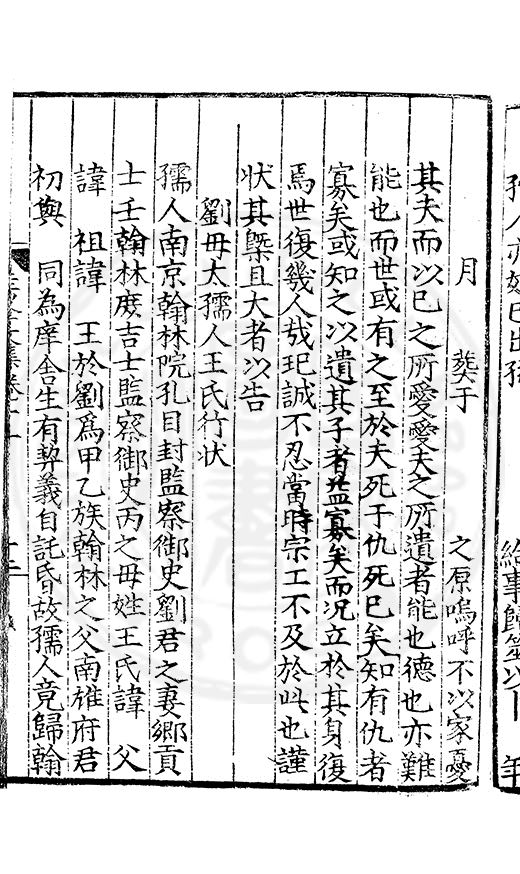 月　葬于　之原嗚呼不以家憂
其夫而以已之所愛愛夫之所遺者能也德也亦難
能也而世或有之至於夫死于仇死已矣知有仇者
寡矣或知之以遺其子者益寡矣而况立於其身復
焉世復幾人哉玘誠不忍當時宗工不及於此也謹
状其槩且大者以告
劉母太孺人王氏行状
孺人南京翰林院孔目封監察御史劉君之妻鄉貢
士壬翰林庶吉士監察御史丙之母姓王氏諱　父
諱　祖諱　王於劉爲甲乙族翰林之父南雄府君
初與　同為庠舍生有契義自託昏故孺人竟歸翰